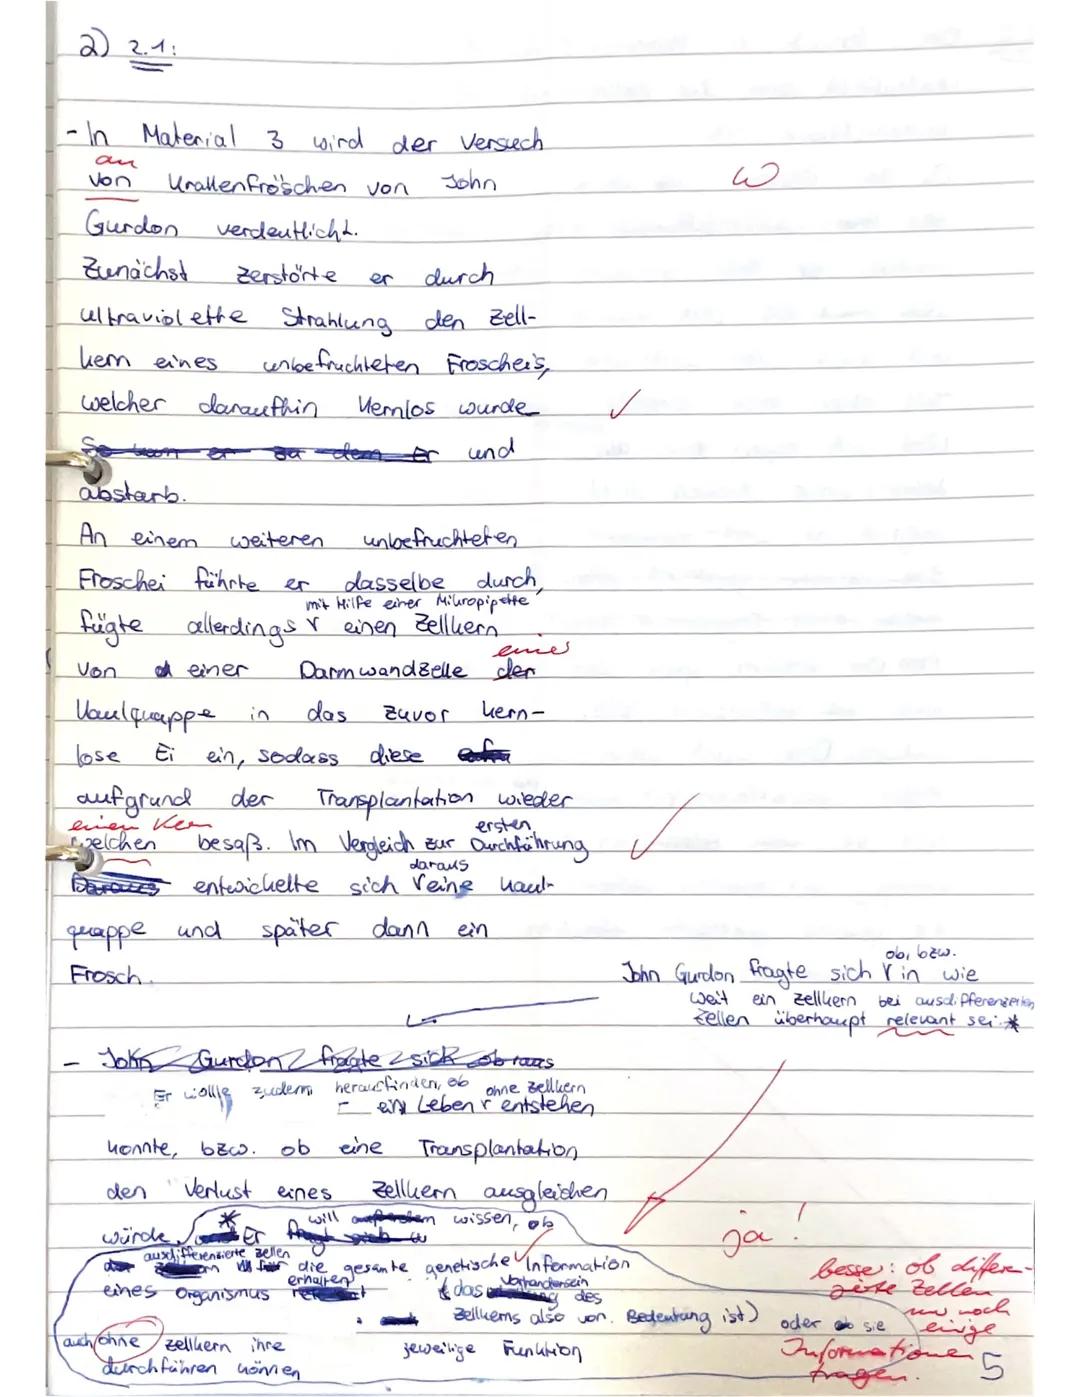 2) 2.1:
- In Material 3 wird der Versuch
an
von Krallenfröschen von John
W
Gurdon verdeutlicht.
Zunächst zerstörte er durch
ultraviolette Strahlung den Zell-
kern eines unbefruchteten Froschei's,
welcher daraufhin Kernlos wurde
So kam er zu dem Er und
abstarb.
An einem weiteren unbefruchteten
Froschei führte er dasselbe durch,
mit Hilfe einer Mikropipette
fügte allerdings einen Zellkern
einer
von einer Darmwandzelle der
Kaulquappe in das zuvor kern-
lose Ei ein, sodass diese
aufgrund der Transplantation wieder
einen Kern
ersten
welchen besaß. Im Vergleich zur Durchführung
daraus
Daraus entwickelte sich eine Kaul-
quappe und später dann ein
Frosch.
ob, bzw.
John Gurdon fragte sich in wie
weit ein Zellkern bei ausdifferenzierten
Zellen überhaupt relevant sei. *
- John Gurdon fragte sich ob
Er wollte zudem herausfinden, ob ohne Zellkern
- ein Leben entstehen
konnte, bzw. ob eine Transplantation
den Verlust eines Zellkern ausgleichen
würde. * Er will wissen, ob
ja!
ausdifferenzierte Zellen
die gesamte genetische Information
eines Organismus erhalten (das Vorhandensein des
Zellkerns also von Bedeutung ist) oder ob sie
auch ohne Zellkern ihre jeweilige Funktion
durchführen können
besser: ob differen-
zierte Zellen
nur noch
einige
Informationen
tragen.
5